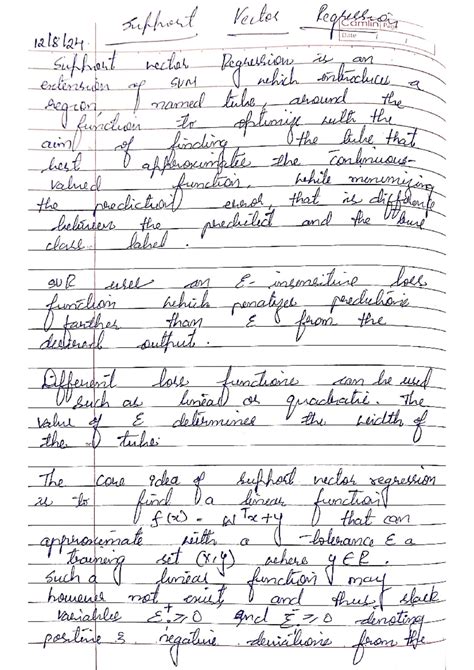 Support Vector Regression
Camlin
Date
12/8/24
Support vector Regression is an
extension of SVM which introduces a
region, named tube, around the
function to optimize with the
aim of finding the tube that
best approximates the continuous-
valued function, while minimizing
the prediction error, that is difference
between the predicted and the true
class label.
SVR uses an ε-insensitive loss
function which penalizes predictions
farther than ε from the
desired output.
Different loss functions can be used
such as linear or quadratic. The
value of ε determines the width of
the tube.
The core idea of support vector regression
is to find a linear function
f(x) = wᵀx+y that can
approximate with a tolerance ε a
training set (x,y) where y∈R.
Such a linear function may
however not exist, and thus slack
variables ξ⁺≥0 and ξ⁻≥0 denoting
positive & negative deviations from the